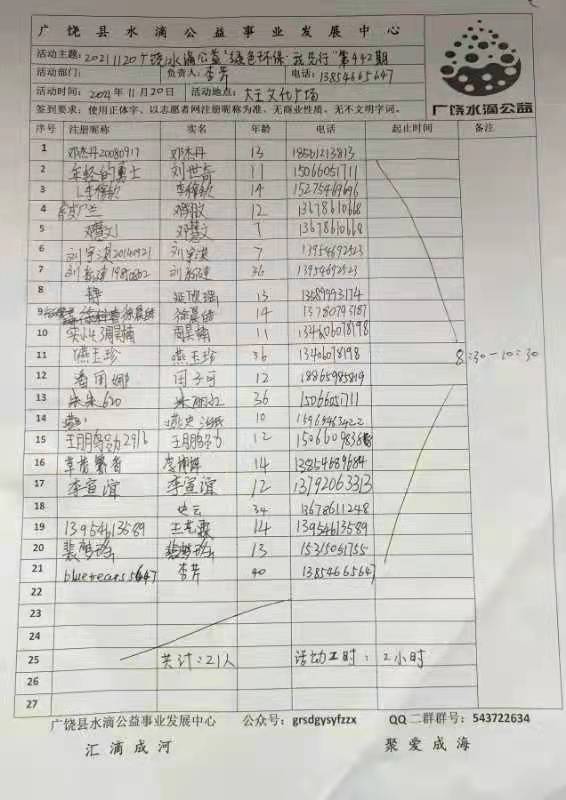 广饶县水滴公益事业发展中心
活动主题: 20211120广饶水滴公益"绿色环保·我先行"第442期
活动部门: 负责人: 李芹 电话: 13854665647
活动时间: 2021年11月20日 活动地点: 大王文化广场
签到要求: 使用正体字、以志愿者网注册昵称为准、无商业性质、无不文明字词。
广饶水滴公益
序号 注册昵称 实名 年龄 电话 起止时间 备注
1 邓杰丹20080917 邓杰丹 13 18561213813
2 年轻的勇士 刘世奇 11 15066051711
3 14 15275469696
4 12 13678610668
5 邓慧文 7 13678610668
6 刘宇淇20140921 刘宇淇 7 13954692523
7 36 13954692523
8 静 13
9 徐晨绪 14 13780793187
10 周昊楠 11 13406078198
11 燕玉珍 燕玉珍 36 13406078198 8:30-10:30
12 潘闺娜 田子可 12 18865985819
13 朱朱620 朱丽红 36 15066051711
14 10
15 王鹏2916 王鹏 12
16 14 13854689684
17 李宣谊 李宣谊 12 13792063313
史云 34 13678611248
19 13954613589 14 13954613589
20 裴梦瑶 裴梦瑶 13 15315051755
21 bluetears5647 李芹 40 13854665647
22
23
24
25 共计:21人 活动工时:2小时
26
27
广饶县水滴公益事业发展中心 公众号: grsdgysyfzzx QQ二群群号: 543722634
汇滴成河 聚爱成海